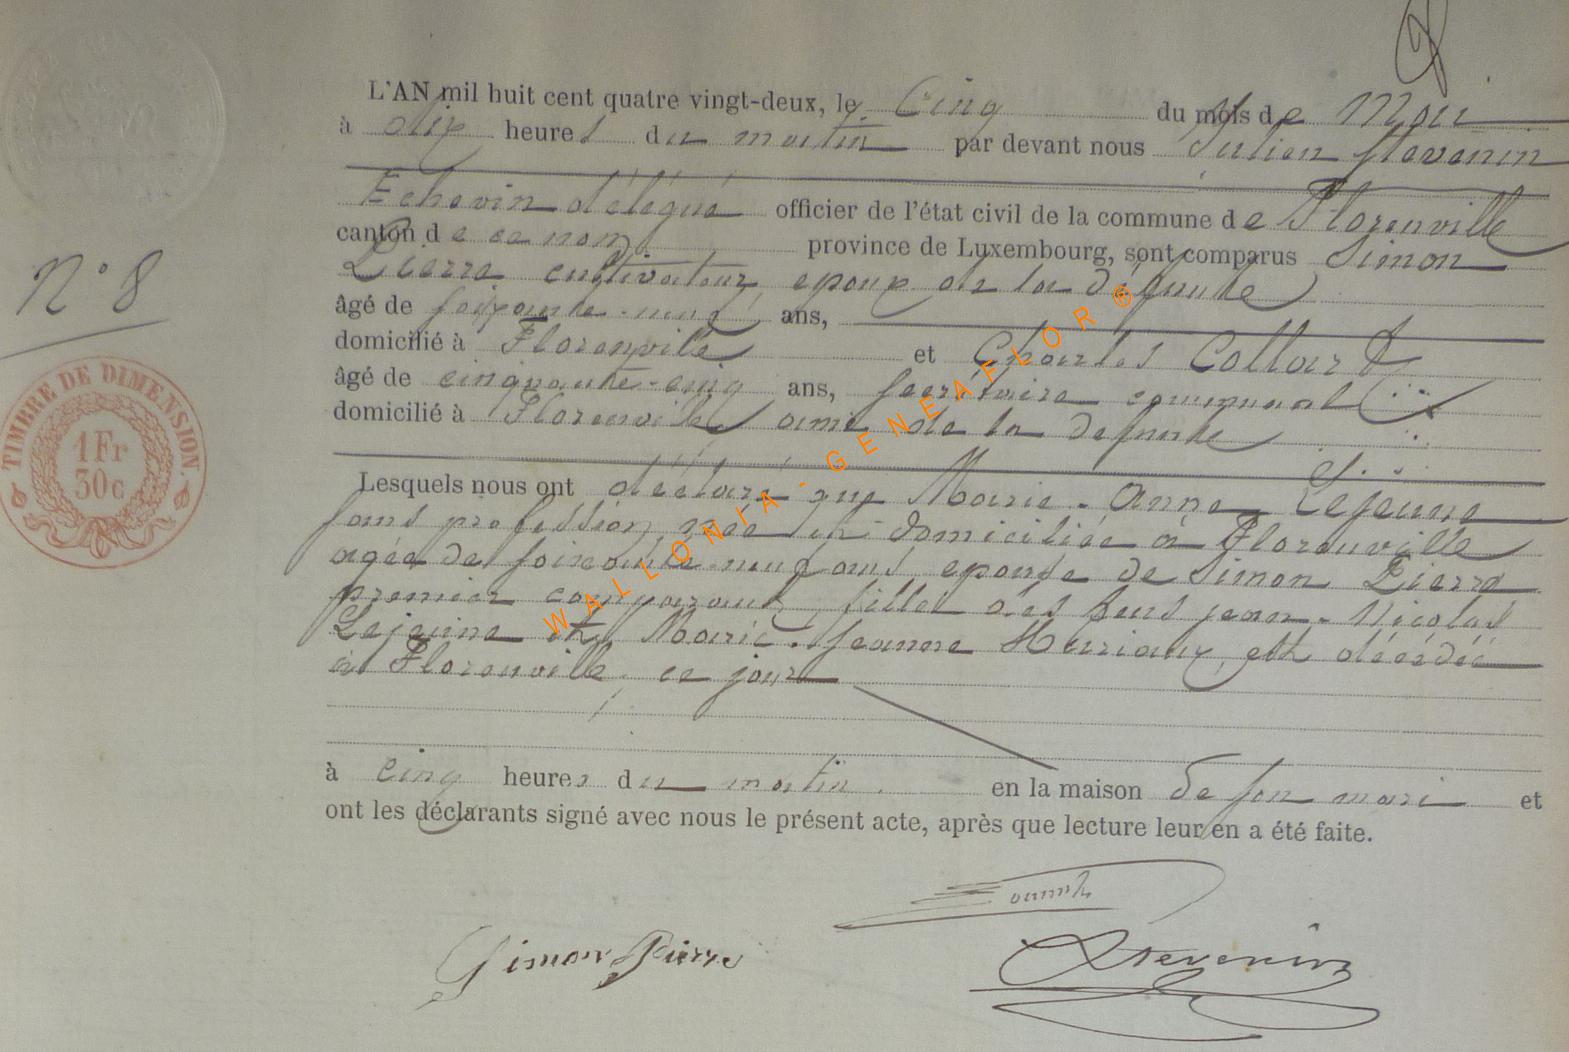 L'AN mil huit cent quatre vingt-deux, le Cinq du mois de Mai
à dix heures du matin par devant nous Julien Stevenin
Echevin délégué officier de l'état civil de la commune de Florenville
canton de ce nom province de Luxembourg, sont comparus Simon
Pierre cultivateur, epoux de la défunte
âgé de soixante-neuf ans,
domicilié à Florenville et Charles Collard
âgé de cinquante-cinq ans, secrétaire communal
domicilié à Florenville ami de la defunte
Lesquels nous ont déclaré que Marie-Anne Lejeune
sans profession, née et domiciliée à Florenville
agée de soixante-neuf ans, epouse de Simon Pierre
premier comparant, fille des feus jean-Nicolas
Lejeune et Marie-Jeanne Henriaux, est décédée
à Florenville, ce jour
à cinq heures du matin en la maison de son mari et
ont les déclarants signé avec nous le présent acte, après que lecture leur en a été faite.
Simon Pierre
Stevenin
N° 8
TIMBRE DE DIMENSION
1Fr
30c
WALLONIA-GENEAFLOR®